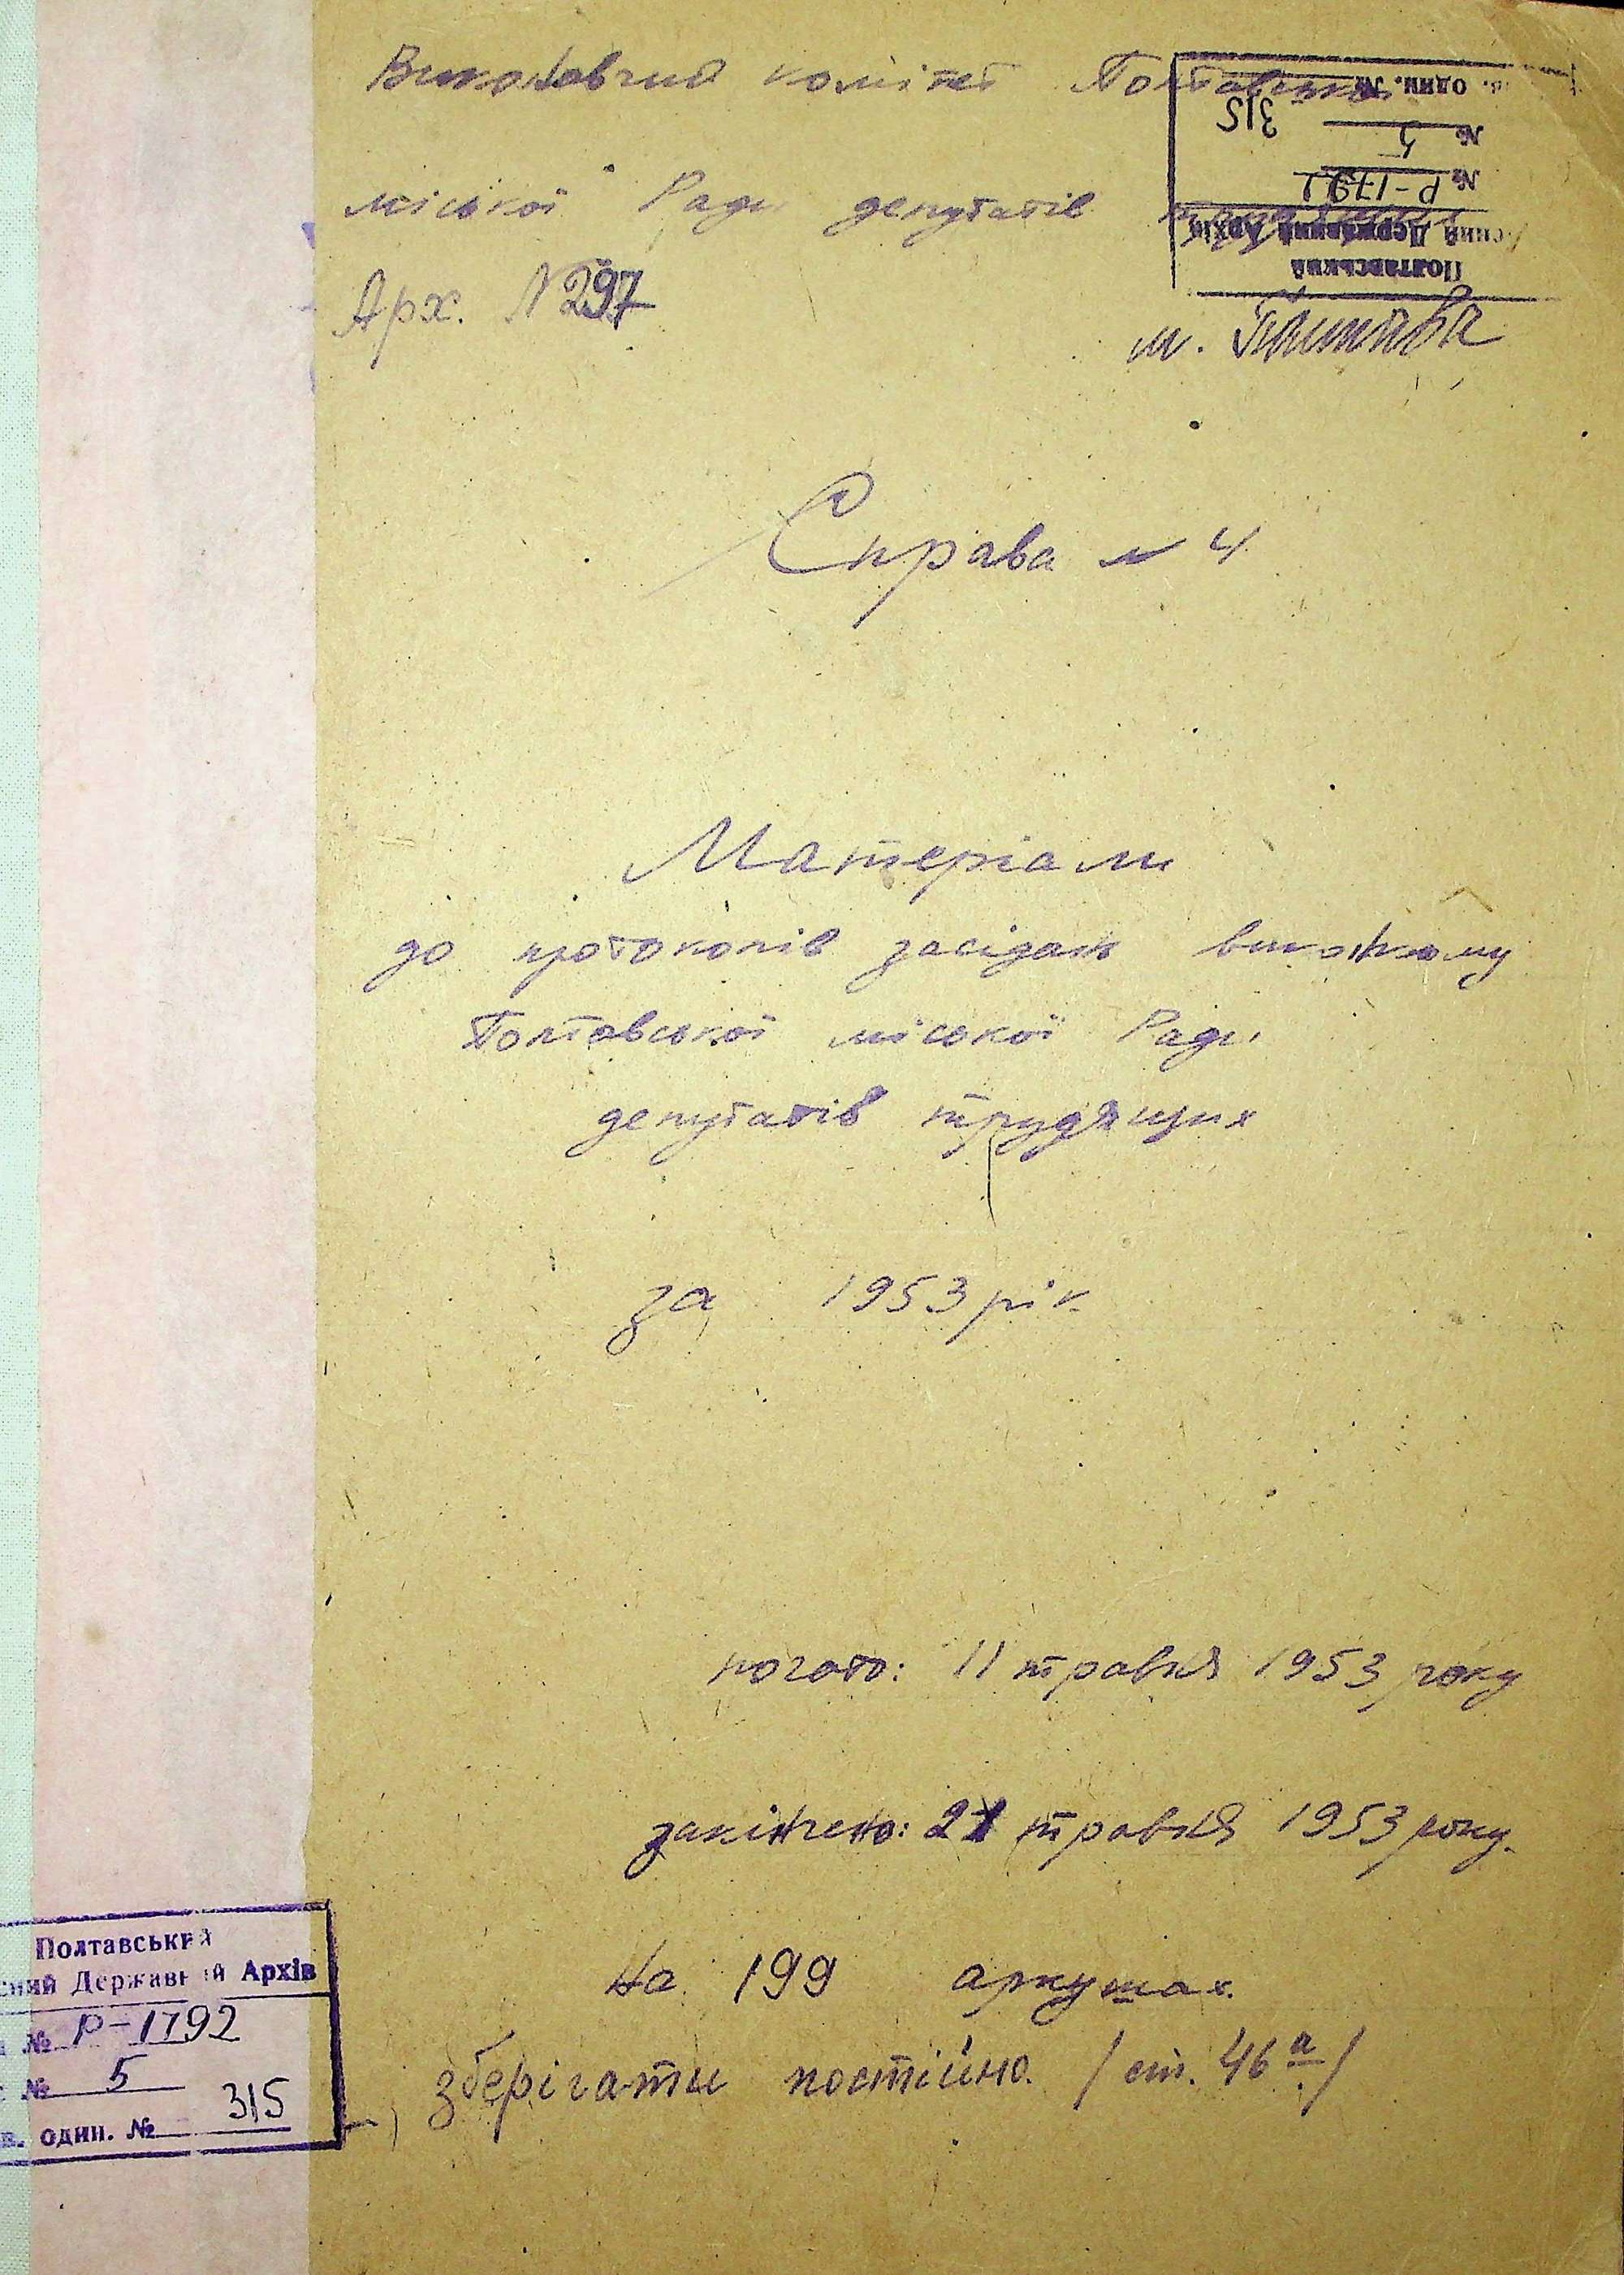 Виконавчий комітет Полтавської
міської Ради депутатів трудящих
Арх. N 297
м. Полтава
в. один. № 315
№ 5
№ Р-1792
сний Державний Архів
Полтавський
Справа N 4
Матеріали
до протоколів засідань виконкому
Полтавської міської Ради
депутатів трудящих
за 1953 рік
почато: 11 травня 1953 року
закінчено: 21 травня 1953 року.
На 199 аркушах.
зберігати постійно. /ст. 46 а/
Полтавський
сний Державний Архів
№ Р-1792
№ 5
в. один. № 315